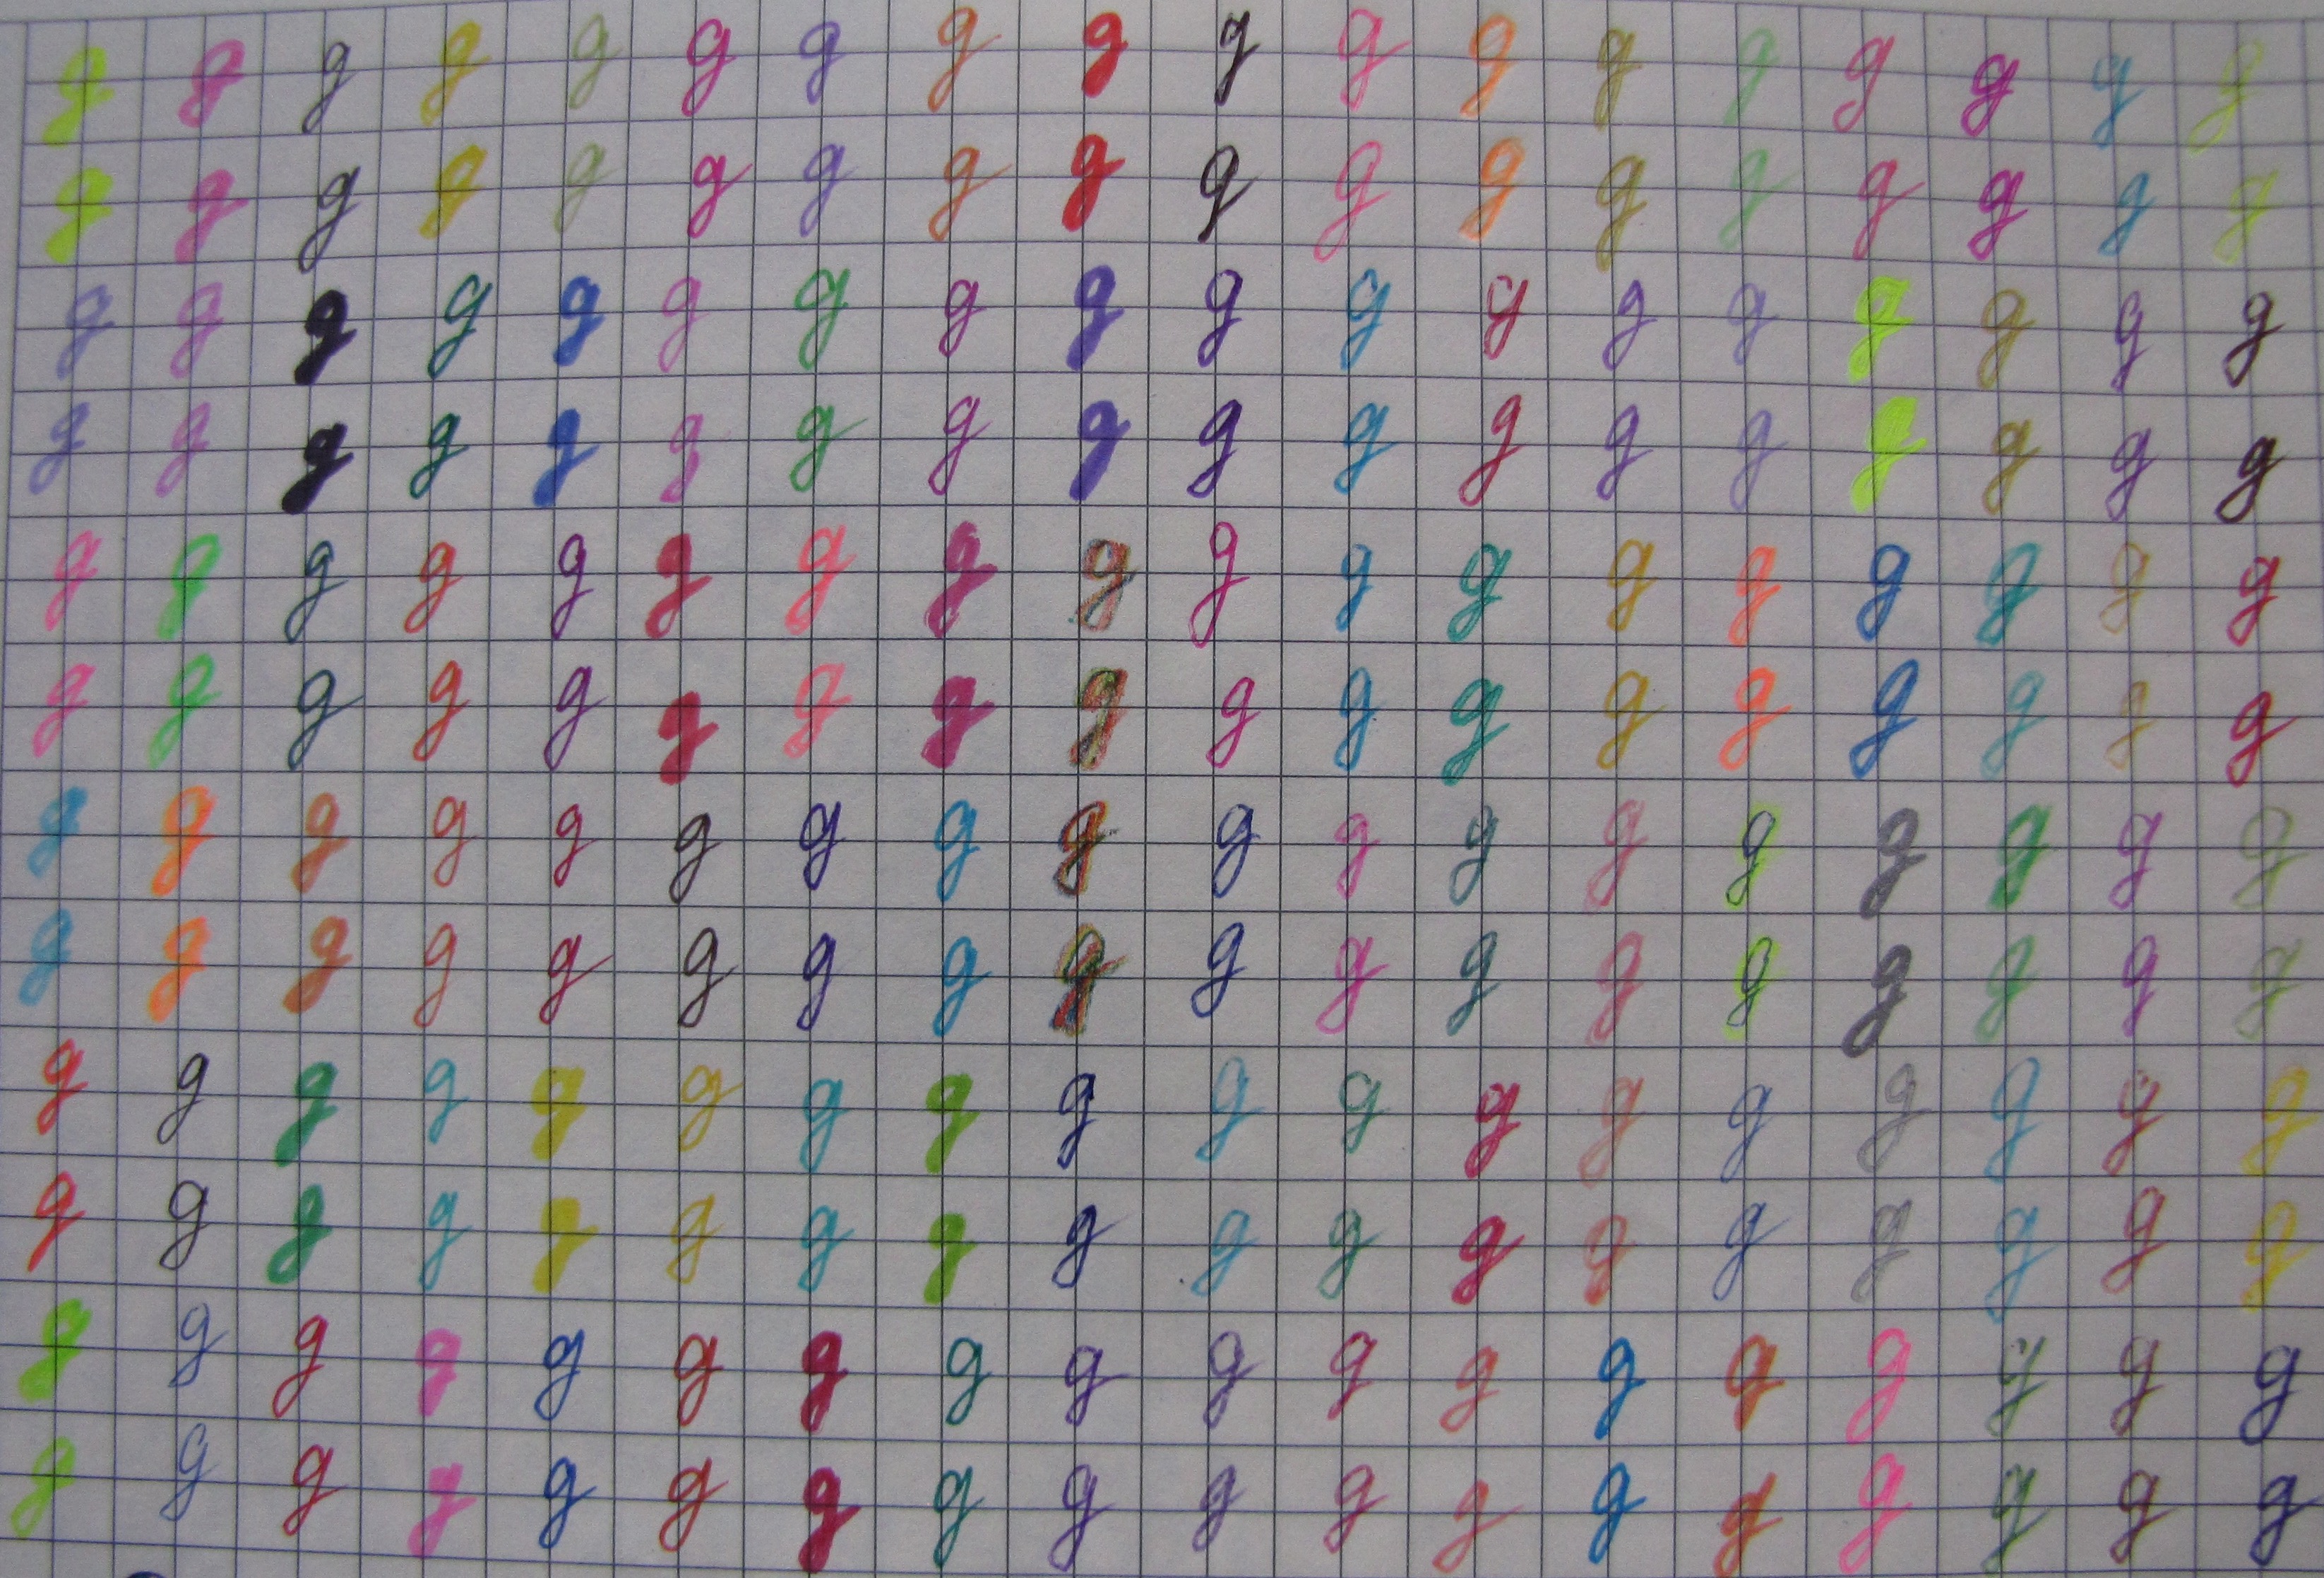 g g g g g g g g g g g g g g g g g g
g g g g g g g g g g g g g g g g g g
g g g g g g g g g g g g g g g g g g
g g g g g g g g g g g g g g g g g g
g g g g g g g g g g g g g g g g g g
g g g g g g g g g g g g g g g g g g
g g g g g g g g g g g g g g g g g g
g g g g g g g g g g g g g g g g g g
g g g g g g g g g g g g g g g g g g
g g g g g g g g g g g g g g g g g g
g g g g g g g g g g g g g g g g g g
g g g g g g g g g g g g g g g g g g